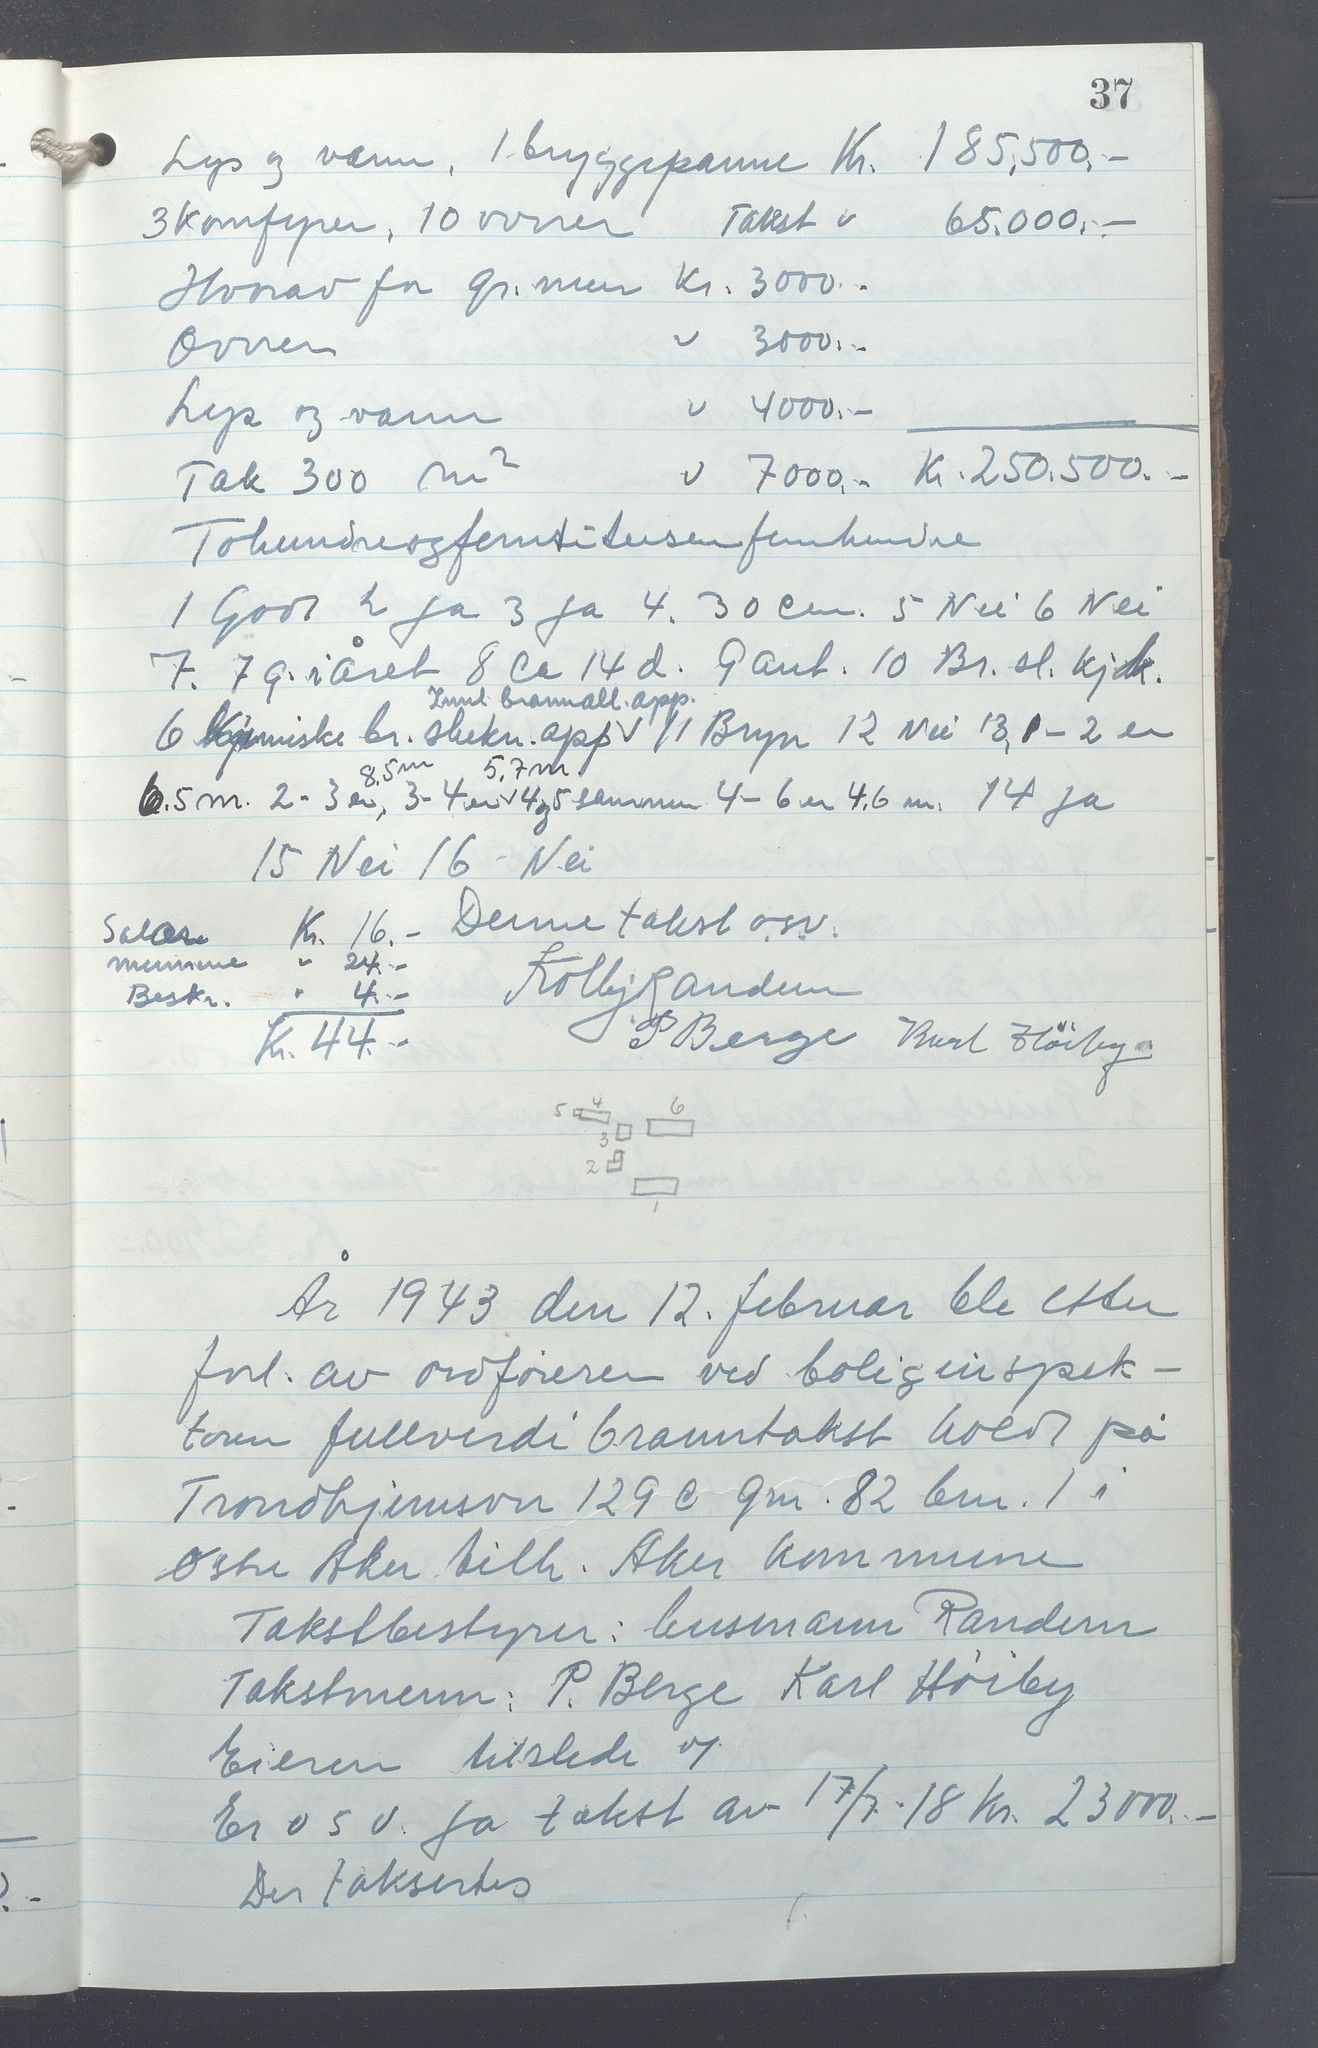 37
Lys og vann, 1 bryggepanne Kr. 185,500.-
3 komfyrer, 10 ovner Takst " 65.000.-
Hvorav for gr. mur Kr. 3000.-
Ovner " 3000.-
Lys og vann " 4000.-
Tak 300 m² " 7000.- Kr. 250.500.-
Tohundreogfemtitusenfemhundre
1 Godt 2 ja 3 ja 4. 30 cm. 5 Nei 6 Nei
7. 7 g. i året 8 Ca 14 d. 9 ant. 10 Br. sl. kjdk.
brannall. app.
6 kjemiske br. slukn. app √ 11 Bryn 12 Nei 13, 1-2 er
8,5 m 5,7 m.
6.5 m. 2-3 er, 3-4 er √ 4 og 5 sammen 4-6 er 4,6 m. 14 ja
15 Nei 16 - Nei
Salær Kr. 16.- Denne takst o.s.v.
mennene " 24.-
Beskr. " 4.- Kolbj Randem
Kr. 44.- P Berge Karl Høiby
5 4 6
3
2
1
År 1943 den 12. februar ble etter
forl. av ordføreren ved boliginspek-
tøren fullverdi branntakst holdt på
Trondhjemsvn 129 C gnr. 82 bnr. 1 i
Østre Aker tilh. Aker kommune
Takstbestyrer: lensmann Randem
Takstmenn: P. Berge Karl Høiby
Eieren tilstede v/
Er o s v. ja takst av 17/7-18 Kr. 23000.-
Der taksertes